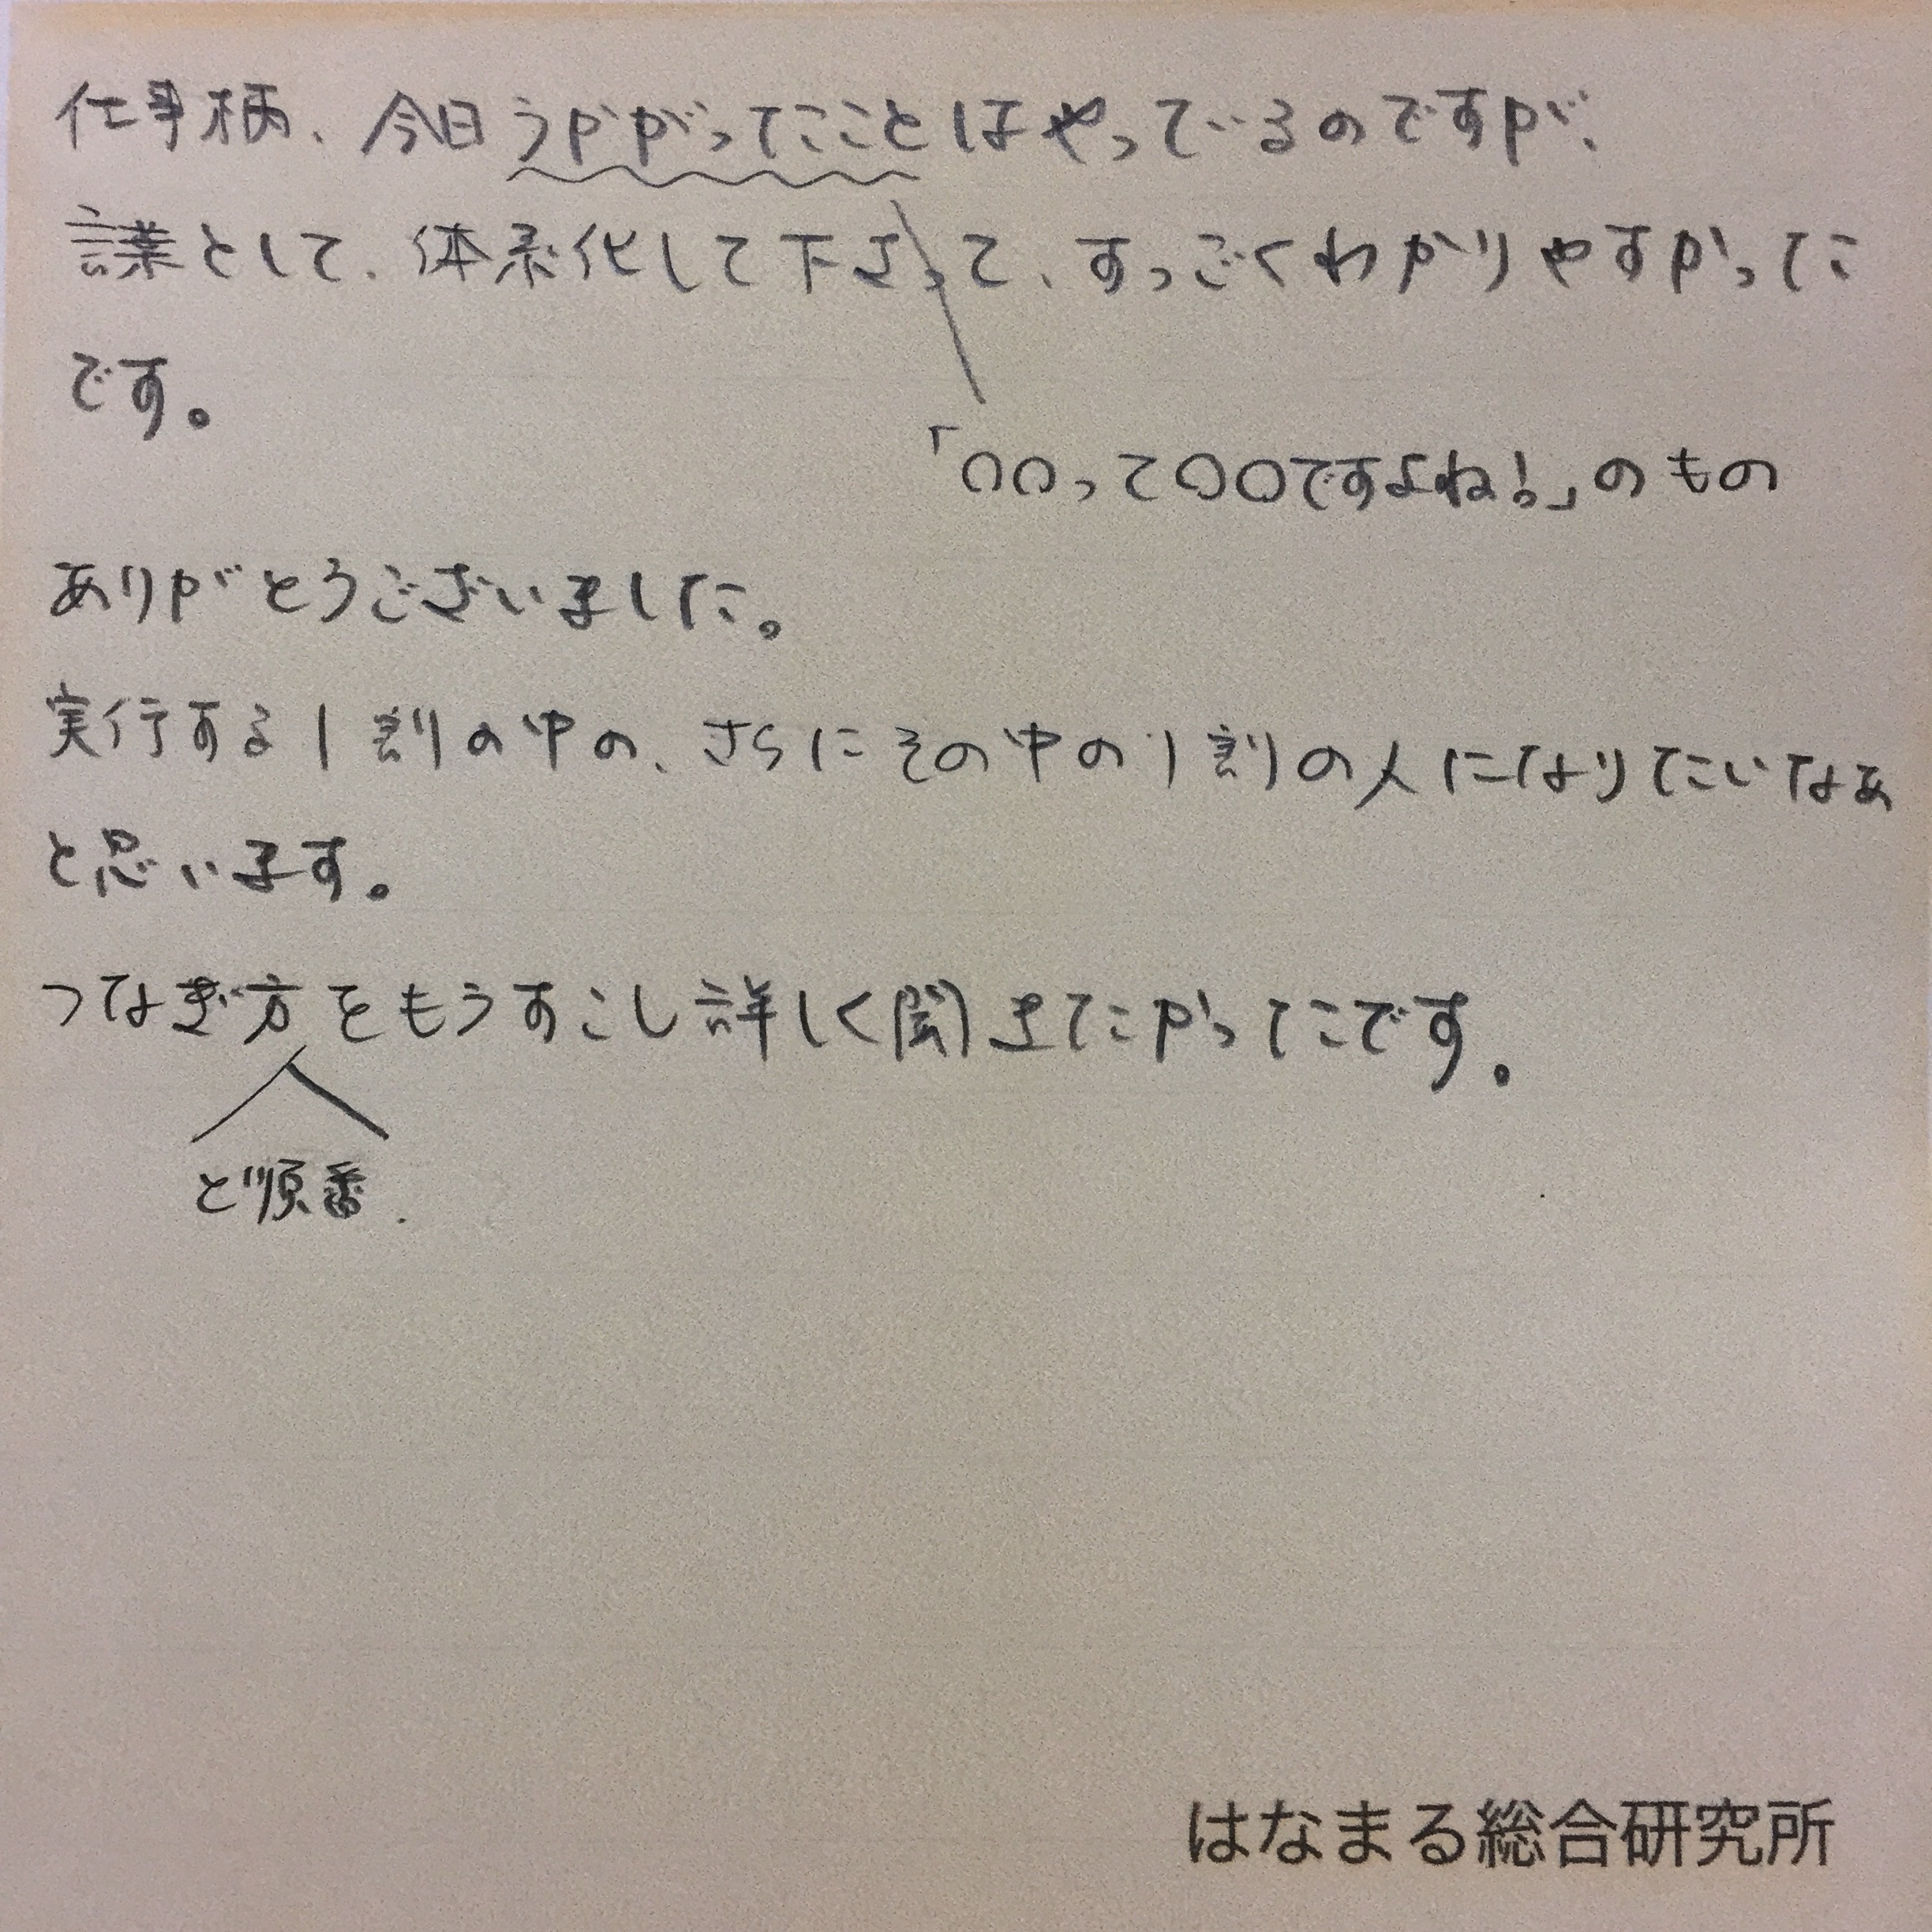 仕事柄、今日うかがったことはやっているのですが、
言葉として、体系化して下さって、すっごくわかりやすかった
です。
「○○って○○ですよね!」のもの
ありがとうございました。
実行する1割の中の、さらにその中の1割の人になりたいなぁ
と思います。
つなぎ方をもうすこし詳しく聞きたかったです。
と順番.
はなまる総合研究所